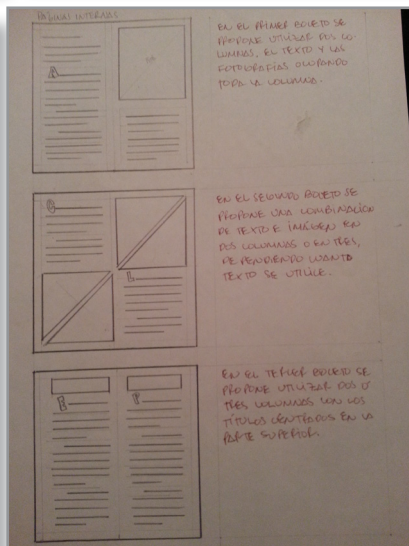 PÁGINAS INTERNAS
EN EL PRIMER BOCETO SE
PROPONE UTILIZAR DOS CO-
LUMNAS, EL TEXTO Y LAS
FOTOGRAFÍAS OCUPANDO
TODA LA COLUMNA.
EN EL SEGUNDO BOCETO SE
PROPONE UNA COMBINACIÓN
DE TEXTO E IMÁGEN EN
DOS COLUMNAS O EN TRES,
DEPENDIENDO CUANTO
TEXTO SE UTILICE.
EN EL TERCER BOCETO SE
PROPONE UTILIZAR DOS O
TRES COLUMNAS CON LOS
TÍTULOS CENTRADOS EN LA
PARTE SUPERIOR.